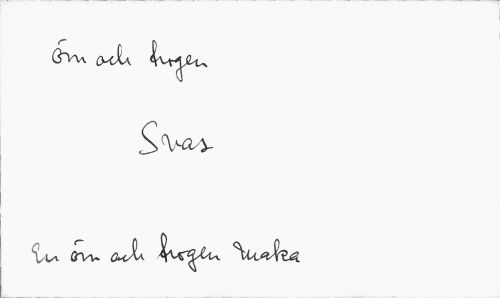 öm och trogen
Svas
En öm och trogen maka